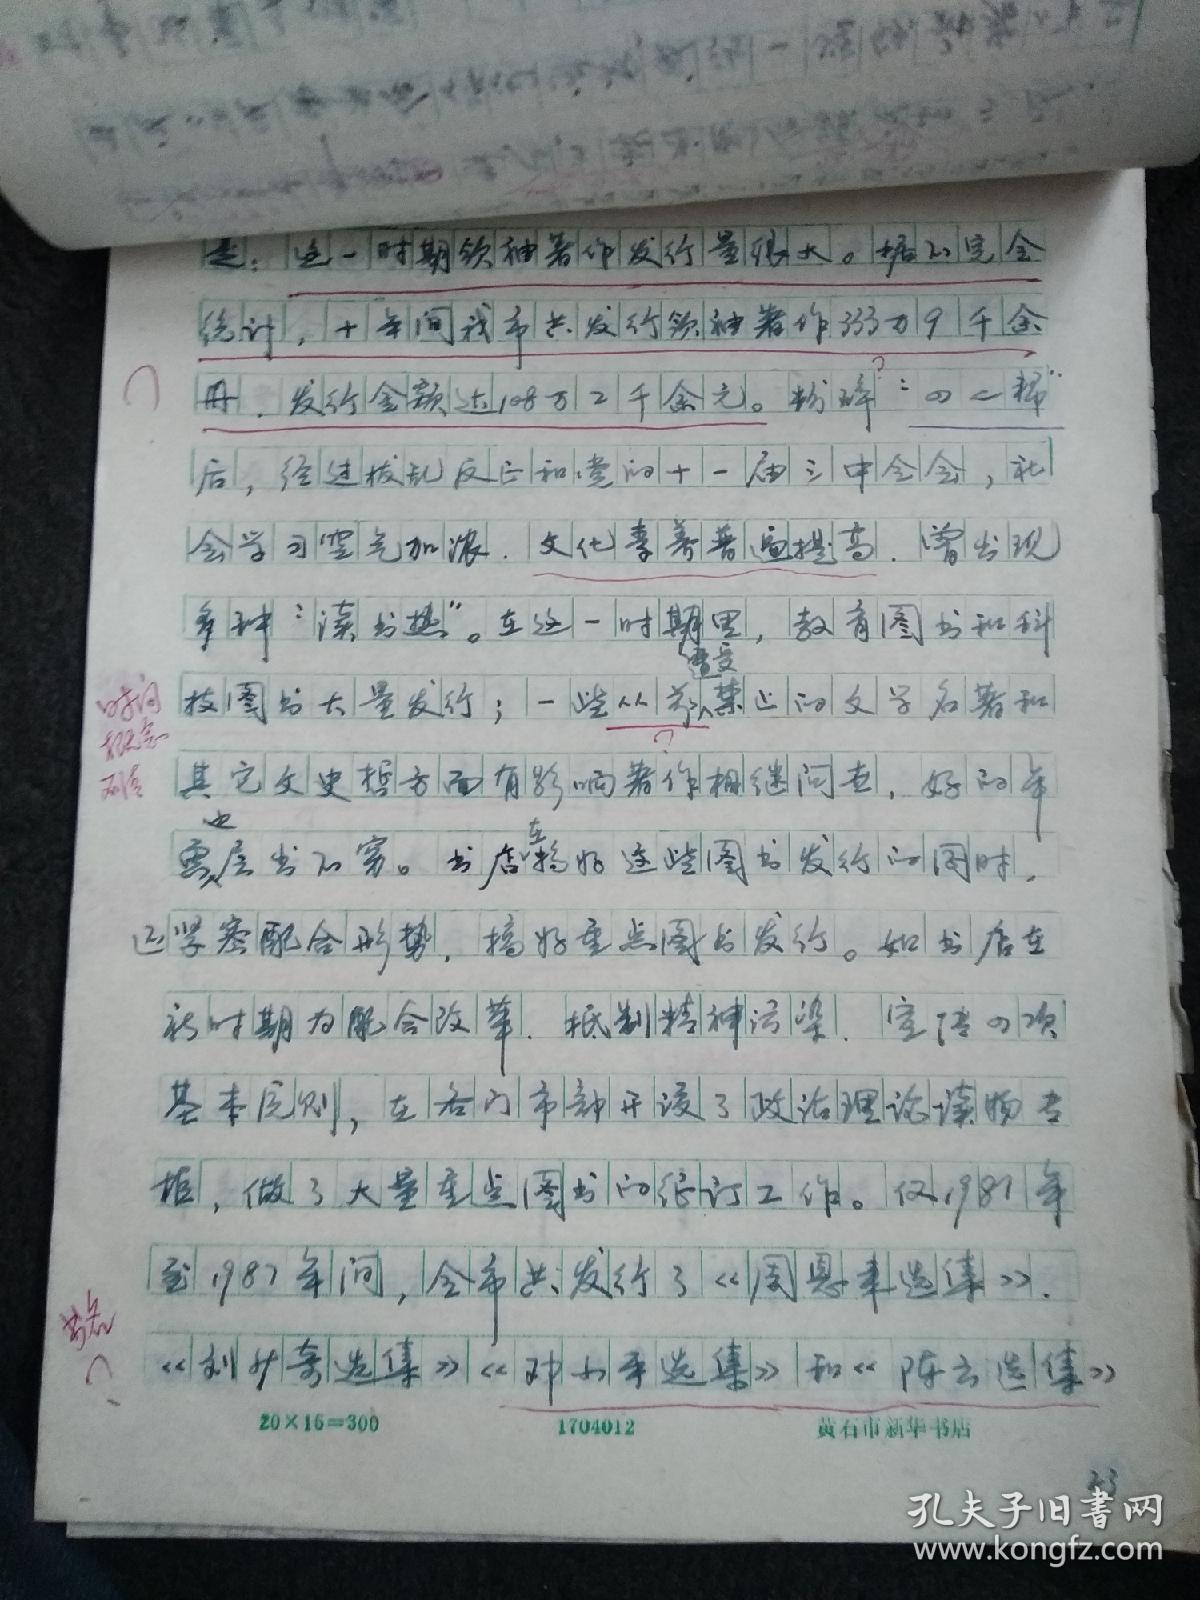 是：这一时期领袖著作发行量很大。据不完全
统计，十年间我市共发行领袖著作333万9千余
册，发行金额达108万2千余元。粉碎“四人帮”
?
后，经过拨乱反正和党的十一届三中全会，社
会学习空气加浓，文化素养普遍提高，曾出现
多种“读书热”。在这一时期里，教育图书和科
遭受
技图书大量发行；一些从前禁止的文学名著和
?
时间
概念
不清
其它文史哲方面有影响著作相继问世，好的年
也 在
画层出不穷。书店搞好这些图书发行的同时，
还紧密配合形势，搞好重点图书发行。如书店在
新时期为配合改革、抵制精神污染、宣传四项
基本原则，在各门市部开设了政治理论读物专
柜，做了大量重点图书的征订工作。仅1981年
至1987年间，全市共发行了《周恩来选集》、
《刘少奇选集》《邓小平选集》和《陈云选集》
20×15=300 1704012 黄石市新华书店
23
孔夫子旧书网
www.kongfz.com